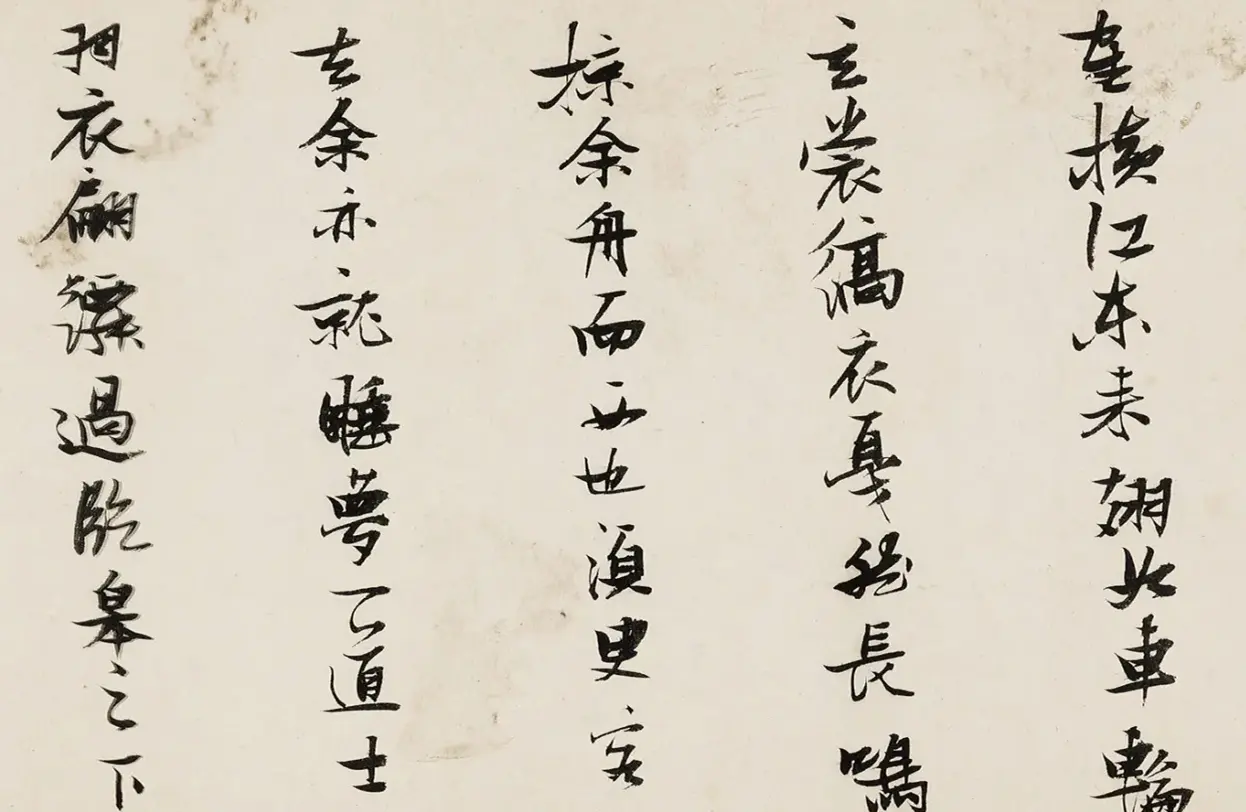 隺橫江東來翅如車輪
玄裳縞衣戛然長鳴
掠余舟而西也須臾客
去余亦就睡夢一道士
羽衣翩躚過臨皋之下